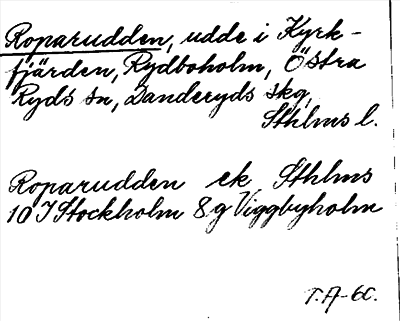 Roparudden, udde i Kyrk-
fjärden, Rydboholm, Östra
Ryds sn, Danderyds skg,
Sthlms l.
Roparudden ek Sthlms
10 I Stockholm 8 g Viggbyholm
T.A-60.